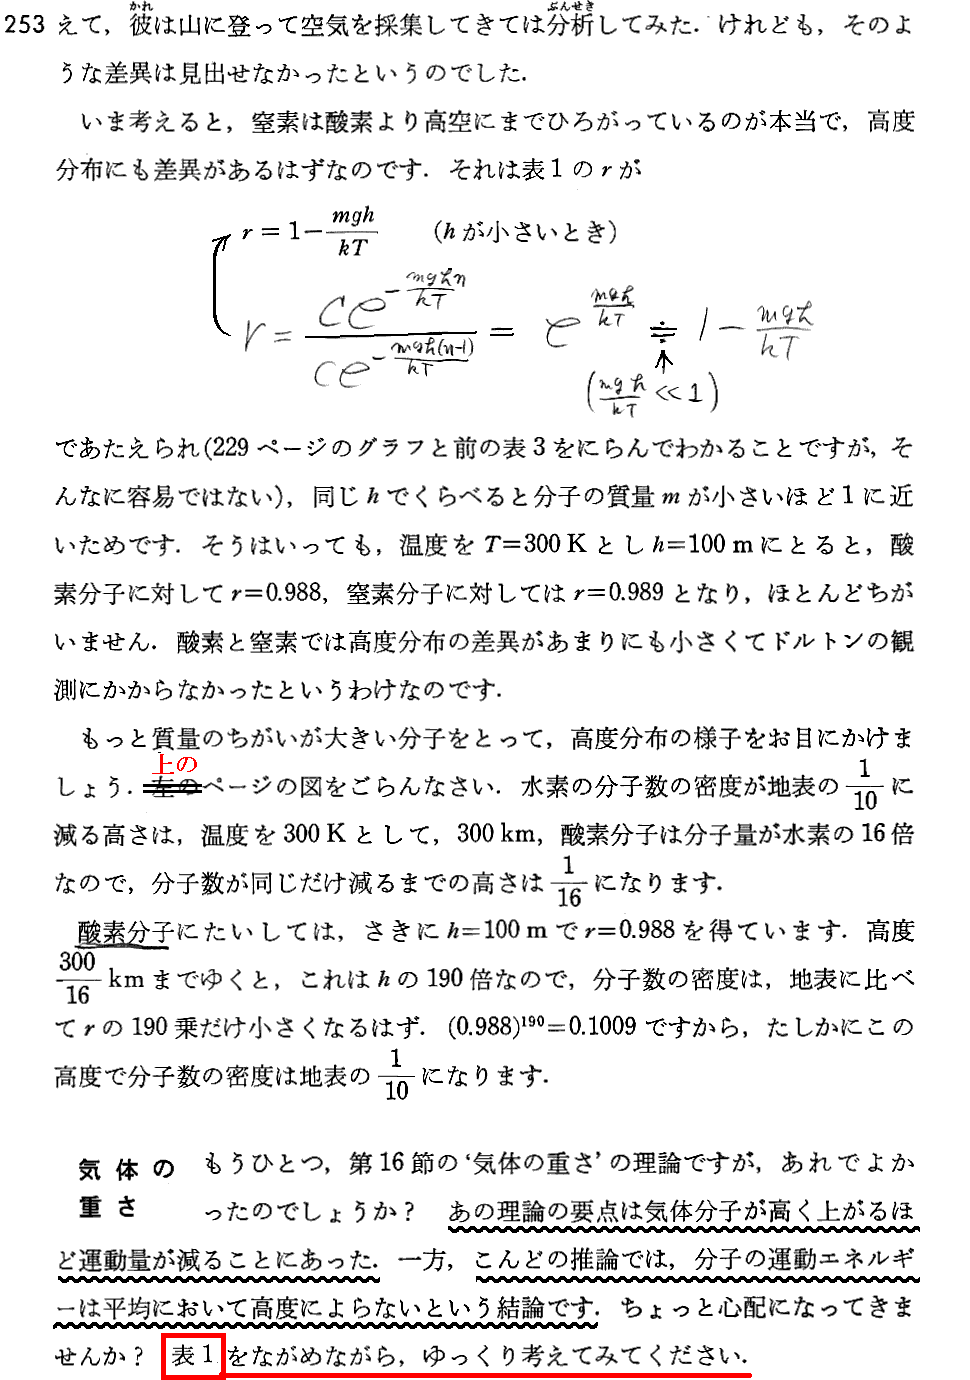 かれ ぶんせき
253 えて，彼は山に登って空気を採集してきては分析してみた．けれども，そのよ
うな差異は見出せなかったというのでした．
いま考えると，窒素は酸素より高空にまでひろがっているのが本当で，高度
分布にも差異があるはずなのです．それは表1のrが
r = 1 − mgh/kT （hが小さいとき）
r = Ce^(−mghn/kT) / Ce^(−mgh(n−1)/kT) = e^(mgh/kT) ≒ 1 − mgh/kT
(mgh/kT ≪ 1)
であたえられ(229 ページのグラフと前の表3をにらんでわかることですが，そ
んなに容易ではない)，同じhでくらべると分子の質量mが小さいほど1に近
いためです．そうはいっても，温度をT=300 Kとしh=100 mにとると，酸
素分子に対してr=0.988，窒素分子に対してはr=0.989となり，ほとんどちが
いません．酸素と窒素では高度分布の差異があまりにも小さくてドルトンの観
測にかからなかったというわけなのです．
もっと質量のちがいが大きい分子をとって，高度分布の様子をお目にかけま
上の
しょう．左のページの図をごらんなさい．水素の分子数の密度が地表の 1/10 に
減る高さは，温度を300 Kとして，300 km，酸素分子は分子量が水素の16倍
なので，分子数が同じだけ減るまでの高さは 1/16 になります．
酸素分子にたいしては，さきにh=100 mでr=0.988を得ています．高度
300/16 kmまでゆくと，これはhの190倍なので，分子数の密度は，地表に比べ
てrの190乗だけ小さくなるはず．(0.988)¹⁹⁰=0.1009ですから，たしかにこの
高度で分子数の密度は地表の 1/10 になります．
気体の
重さ
もうひとつ，第16節の‘気体の重さ’の理論ですが，あれでよか
ったのでしょうか？ あの理論の要点は気体分子が高く上がるほ
ど運動量が減ることにあった．一方，こんどの推論では，分子の運動エネルギ
ーは平均において高度によらないという結論です．ちょっと心配になってきま
せんか？ 表1をながめながら，ゆっくり考えてみてください．